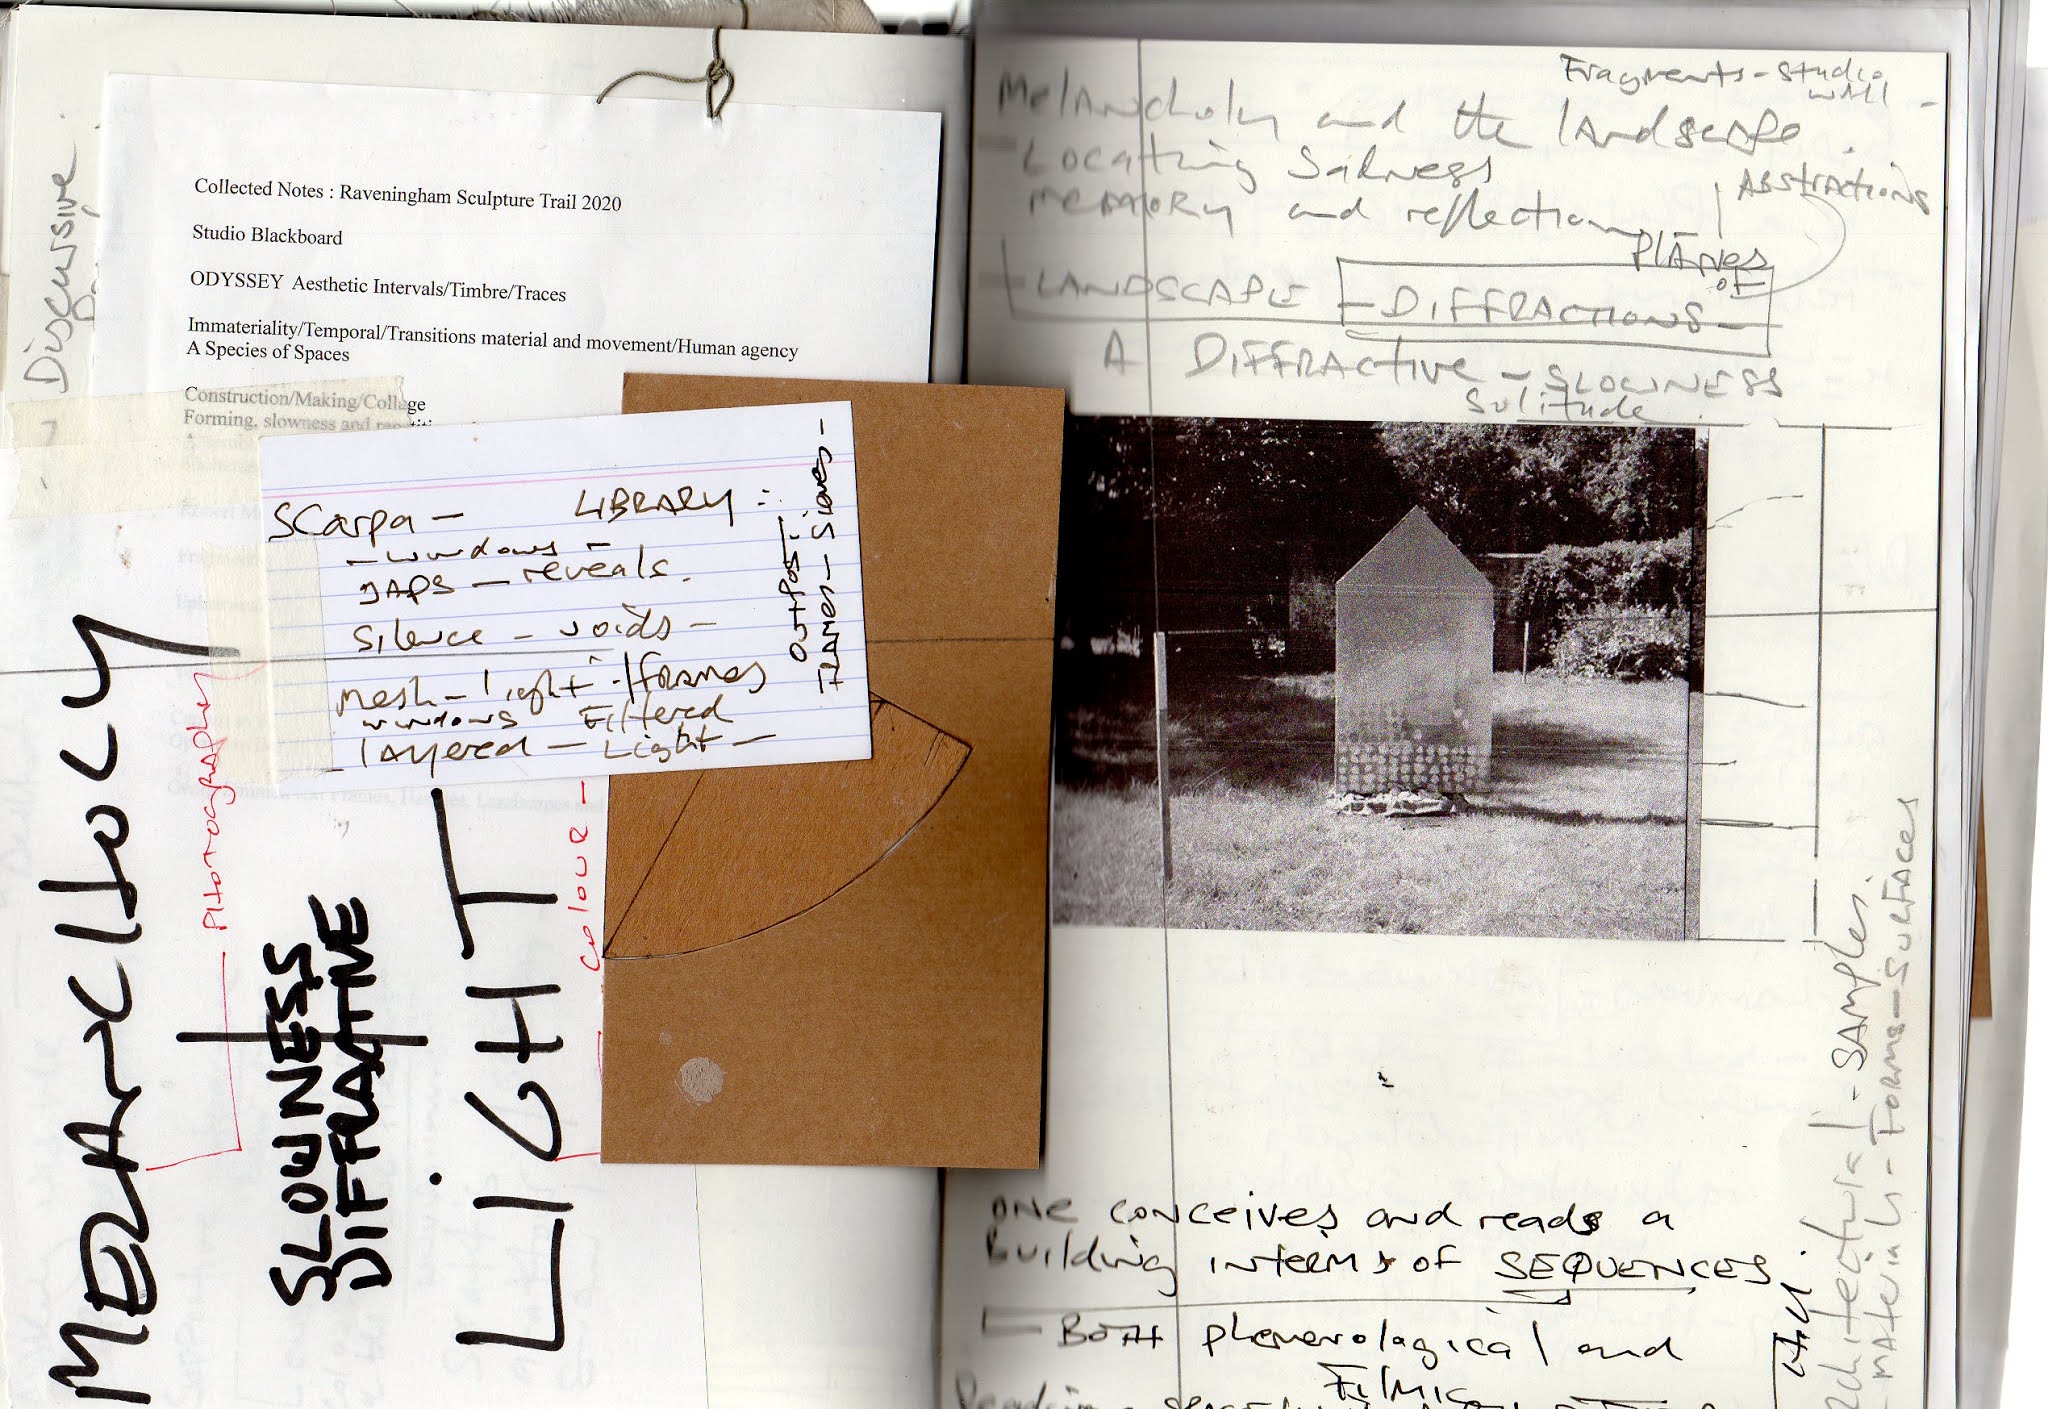 Discursive
Collected Notes : Raveningham Sculpture Trail 2020
Studio Blackboard
ODYSSEY Aesthetic Intervals/Timbre/Traces
Immateriality/Temporal/Transitions material and movement/Human agency
A Species of Spaces
Construction/Making/Collage
Forming, slowness and
SCarpa – LIBRARY :
– windows –
gaps – reveals.
Silence – voids –
mesh – light – /frames
windows Filtered
layered – Light –
OUTPOST
FLAMES – Sieves –
MELANCHOLY
PHOTOGRAPHY
SLOWNESS
DIFFRACTIVE
LIGHT
Colour –
Fragments – studio
wall –
Melancholy and the landscape.
Locating Sadness
memory and reflection
ABstractions
PLANES
of
LANDSCAPE – DIFFRACTIONS –
A DIFFRActive – SLOWNESS
Solitude
ONE conceives and reads a
Building in terms of SEQUENCES
– Both phenerological and
Filmic
Architectural – SAMPles.
– Materials – Forms – SURFACES